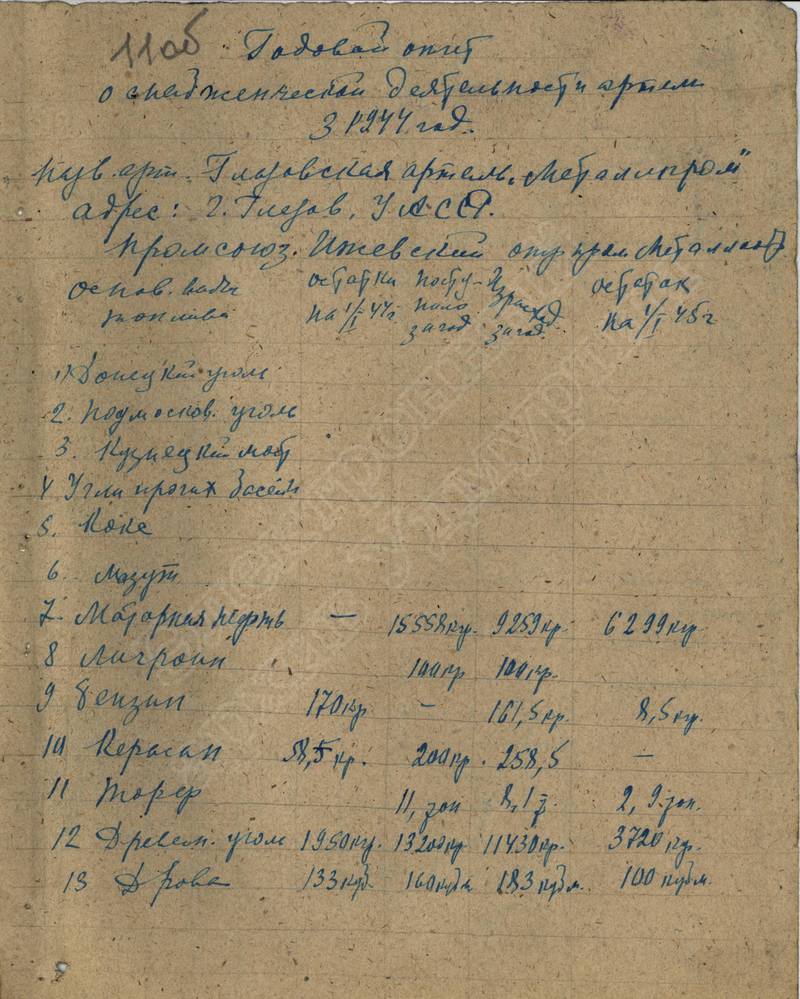 11об
Годовой отчёт
о снабженческой деятельности артели
З 1944 год.
Наз. арт. Глазовская артель "Металлпром"
адрес: г. Глазов, УАССР.
Промсоюз. Ижевский
основ. виды топлива остатки на 1/I 44г поступило за год Израсход. за год. остаток на 1/I 45г
1) Донецкий уголь
2. Подмосков. уголь
3. Кузнецкий
4 Угли прочих басейн
5. Кокс
6. Мазут
7. Моторная нефть — 15558кгр. 9259кгр. 6299кгр.
8 Лигроин 100кгр 100кгр.
9 Бензин 170кгр — 161,5кгр. 8,5кгр.
10 Керасин 58,5 кгр. 200кгр. 258,5 —
11 Торф 11, тон 8,1 т 2,9 тон.
12 Древесн. уголь 1950кгр. 13200кгр 11430кгр. 3720кгр.
13 Дрова 133куб. 160кубм 183кубм. 100кубм.